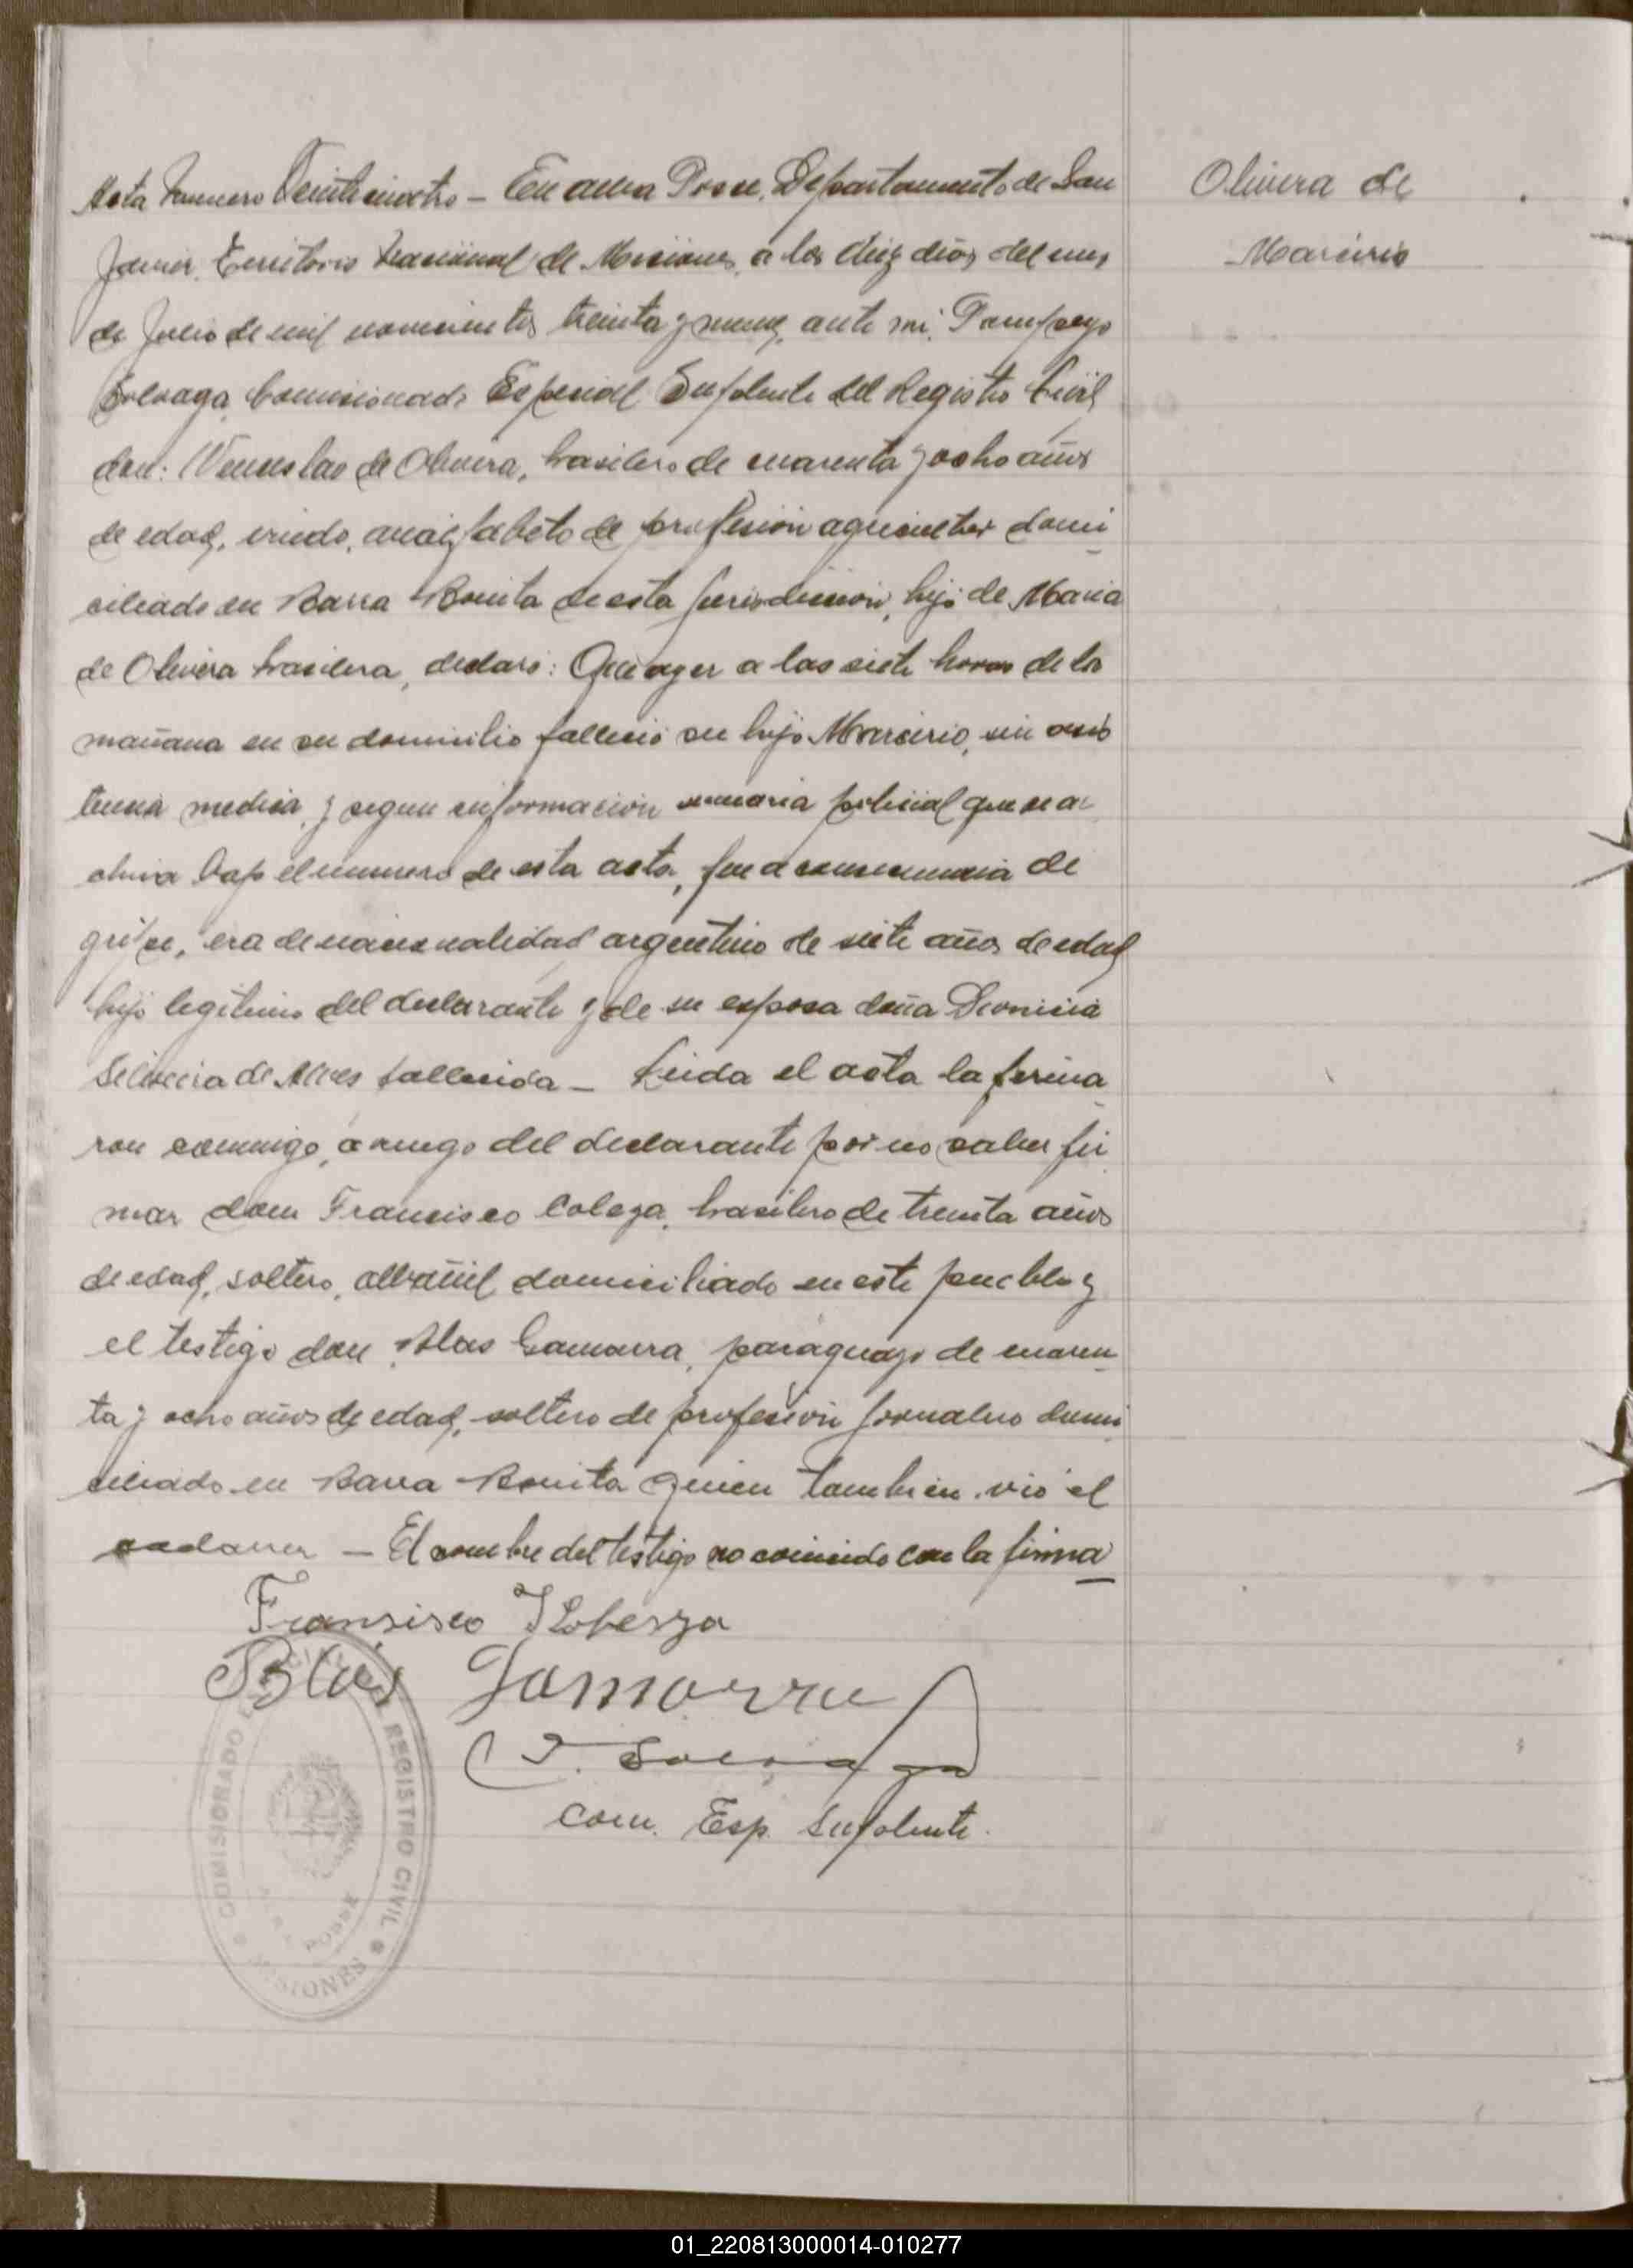 Acta Numero Veinticuatro – En Alba Posse, Departamento de San
Olivera de
Javier, Territorio Nacional de Misiones, a los diez dias del mes
Marcirio
de Julio de mil novecientos treinta y nueve, ante mi: Pampeyo
Solvaga, Comisionado Especial Suplente del Registro Civil
don: Wenceslao de Olivera, brasilero de cuarenta y ocho años
de edad, viudo, analfabeto de profesión agricultor domi
ciliado en Barra Bonita de esta jurisdiccion, hijo de Maria
de Olivera brasilera, declaró: Que ayer a las siete horas de la
mañana en su domicilio falleció su hijo Marcirio, sin asis
tencia medica, y segun información sumaria policial que se ar
chiva bajo el numero de esta acta, fue a consecuencia de
gripe, era de nacionalidad argentino de siete años de edad
hijo legitimo del declarante y de su esposa doña Dionicia
de Alves fallecida – Leida el acta la firma
ron conmigo, a ruego del declarante por no saber fir
mar don Francisco Coleza, brasilero de treinta años
de edad, soltero, albañil domiciliado en este pueblo y
el testigo don Blas Gamarra, paraguayo de cuaren
ta y ocho años de edad, soltero de profesión jornalero domi
ciliado en Barra Bonita quien tambien vió el
cadaver – El nombre del testigo no coincide con la firma
Fransisco
Blas Gamarra
P. Solvaga
Com. Esp. Suplente.
COMISIONADO ESPECIAL DEL REGISTRO CIVIL
ALBA POSSE
MISIONES
01_220813000014-010277